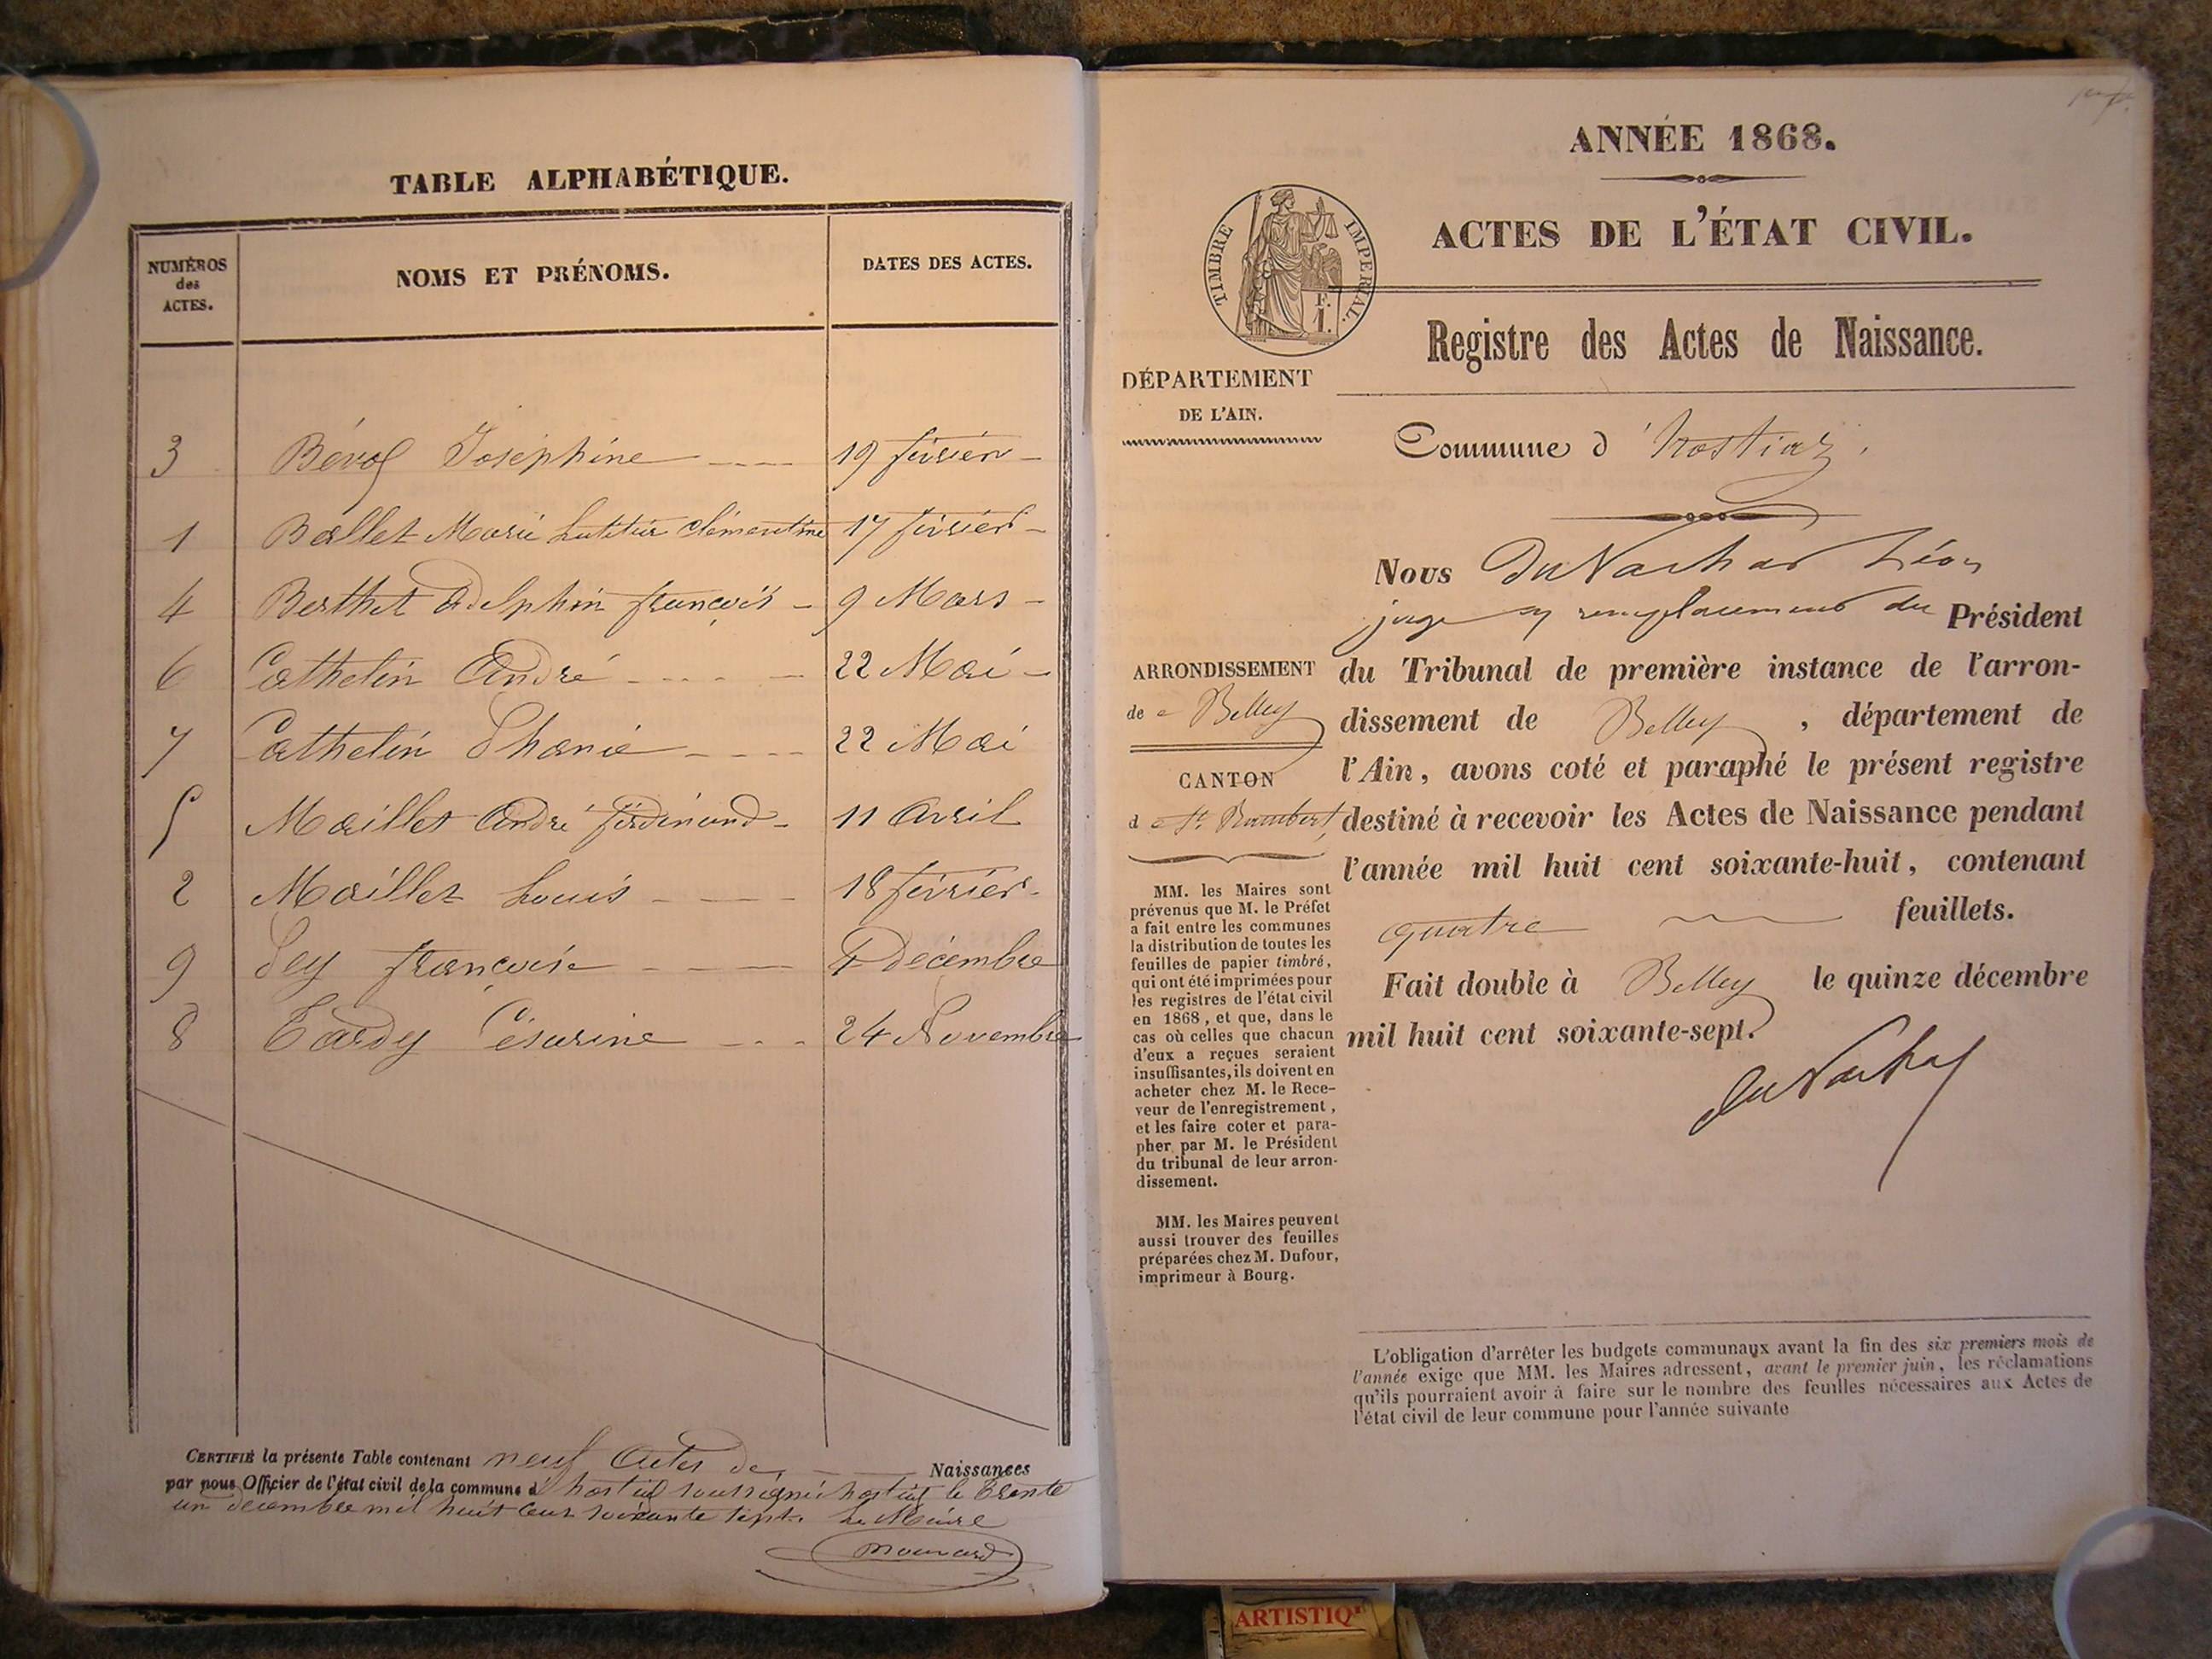 TABLE ALPHABÉTIQUE.
NUMÉROS des ACTES.
NOMS ET PRÉNOMS.
DATES DES ACTES.
3 Joséphine 19 février
1 Ballet Marie Clémentine 17 février
4 Berthet Adelphin françois 9 Mars
6 Cathelin André 22 Mai
7 Cathelin Phanie 22 Mai
5 Maillet André ferdinand 11 Avril
2 Maillet Louis 18 février
9 Sey françoise 4 décembre
8 Tardy Césarine 24 Novembre
CERTIFIÉ la présente Table contenant neuf Actes de Naissances
par nous Officier de l'état civil de la commune d'hostiaz soussigné hostiaz le trente
un décembre mil huit cent soixante sept. Le Maire
ANNÉE 1868.
ACTES DE L'ÉTAT CIVIL.
TIMBRE IMPERIAL.
F.
1.
Registre des Actes de Naissance.
DÉPARTEMENT
DE L'AIN.
Commune d'hostiaz.
Nous Léon
juge en remplacement du Président
du Tribunal de première instance de l'arron-
dissement de Belley, département de
l'Ain, avons coté et paraphé le présent registre
destiné à recevoir les Actes de Naissance pendant
l'année mil huit cent soixante-huit, contenant
quatre feuillets.
Fait double à Belley le quinze décembre
mil huit cent soixante-sept.
ARRONDISSEMENT
de Belley
CANTON
de St. Rambert
MM. les Maires sont
prévenus que M. le Préfet
a fait entre les communes
la distribution de toutes les
feuilles de papier timbré,
qui ont été imprimées pour
les registres de l'état civil
en 1868, et que, dans le
cas où celles que chacun
d'eux a reçues seraient
insuffisantes, ils doivent en
acheter chez M. le Rece-
veur de l'enregistrement,
et les faire coter et para-
pher par M. le Président
du tribunal de leur arron-
dissement.
MM. les Maires peuvent
aussi trouver des feuilles
préparées chez M. Dufour,
imprimeur à Bourg.
L'obligation d'arrêter les budgets communaux avant la fin des six premiers mois de
l'année exige que MM. les Maires adressent, avant le premier juin, les réclamations
qu'ils pourraient avoir à faire sur le nombre des feuilles nécessaires aux Actes de
l'état civil de leur commune pour l'année suivante
ARTISTIQ